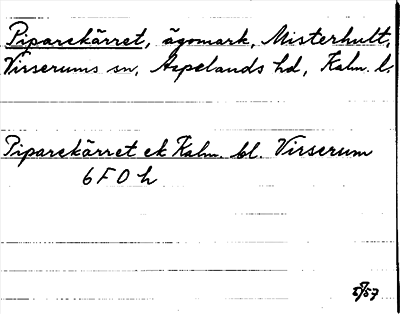 Piparekärret, ägomark, Misterhult,
Virserums sn, Aspelands hd, Kalm. l.
Piparekärret ek Kalm. bl. Virserum
6 F 0 h